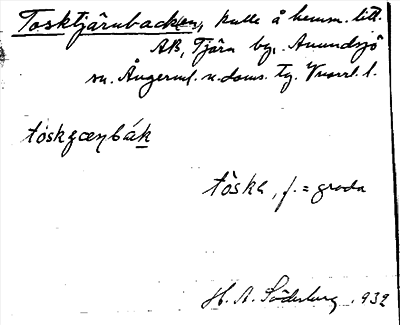 Tosktjärnbacken, kulle å hemm. litt.
AB, Tjärn by, Anundsjö
sn. Ångerml. n. doms. tg. Vnorrl. l.
tòskɟæɳbák
tòska, f. = groda
H. A. Söderberg. 932